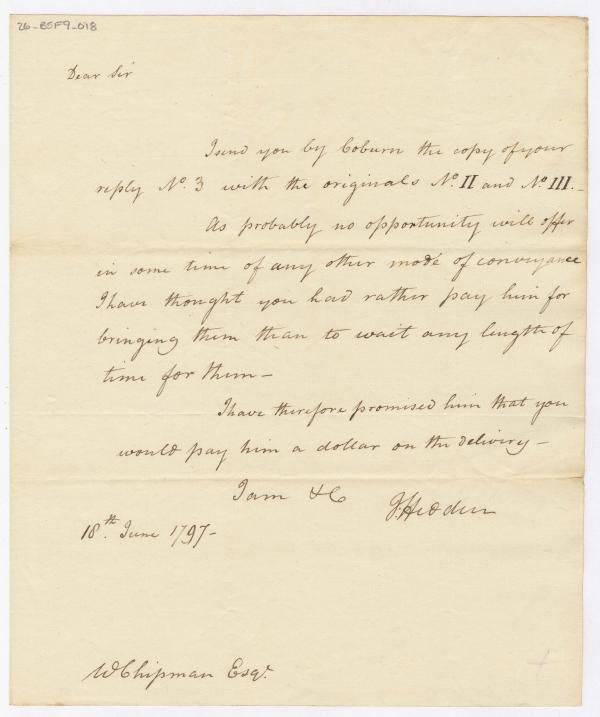 26-B5F9-018
Dear Sir
I send you by Coburn the copy of your
reply No. 3 with the originals No. II and No. III.-
As probably no opportunity will offer
in some time of any other mode of conveyance
I have thought you had rather pay him for
bringing them than to wait any length of
time for them-
I have therefore promised him that you
would pay him a dollar on the delivery-
I am &C J. Hedden
18.th June 1797-
W Chipman Esqr.